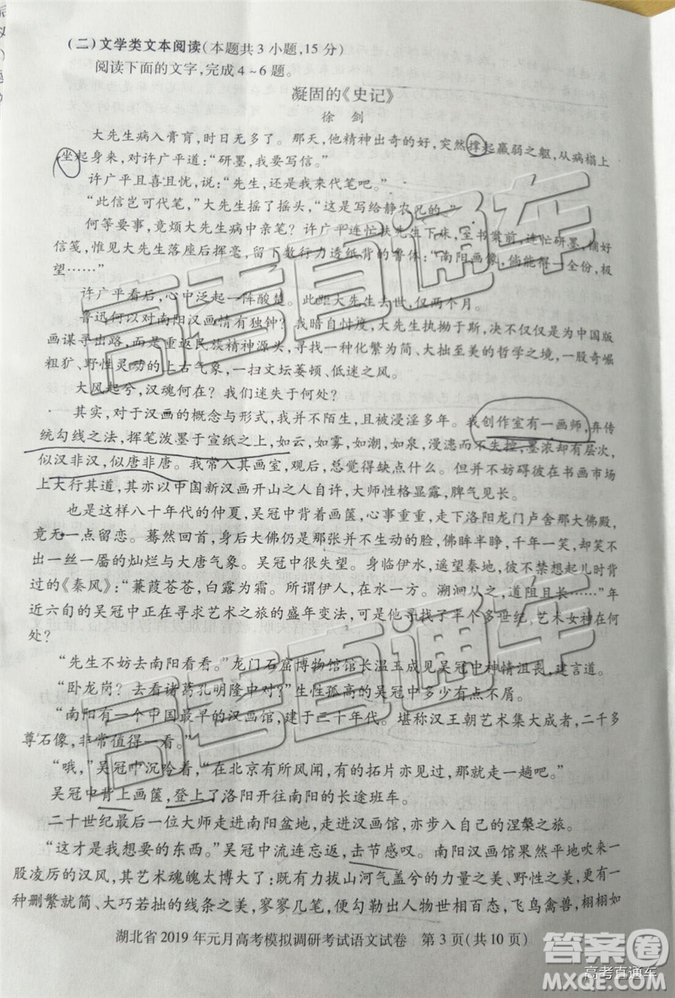 (二)文学类文本阅读(本题共3小题,15分)
阅读下面的文字,完成4~6题。
凝固的《史记》
徐 剑
大先生病入膏肓,时日无多了。那天,他精神出奇的好,突然撑起羸弱之躯,从病榻上
坐起身来,对许广平道:“研墨,我要写信。”
许广平且喜且忧,说:“先生,还是我来代笔吧。”
“此信岂可代笔,”大先生摇了摇头,“这是写给静农兄的。”
何等要事,竟烦大先生病中亲笔?许广平连忙扶先生下床,坐书案前,连忙研墨,铺好
信笺,惟见大先生落座后挥毫,留下数行力透纸背的鲁体:“南阳画像,倘能得一全份,极
望……”
许广平看后,心中泛起一阵酸楚。此距大先生去世,仅两个月。
鲁迅何以对南阳汉画情有独钟?我暗自忖度,大先生执拗于斯,决不仅仅是为中国版
画谋寻出路,而是重返民族精神源头,寻找一种化繁为简、大拙至美的哲学之境,一股奇崛
粗犷、野性灵动的上古气象,一扫文坛萎顿、低迷之风。
大风起兮,汉魂何在?我们迷失于何处?
其实,对于汉画的概念与形式,我并不陌生,且被浸淫多年。我创作室有一画师,弃传
统勾线之法,挥笔泼墨于宣纸之上,如云,如雾,如潮,如泉,漫漶而不生控,墨浓却有层次,
似汉非汉,似唐非唐。我常入其画室,观后,总觉得缺点什么。但并不妨碍彼在书画市场
上大行其道,其亦以中国新汉画开山之人自许,大师性格显露,脾气见长。
也是这样八十年代的仲夏,吴冠中背着画箧,心事重重,走下洛阳龙门卢舍那大佛殿,
竟无一点留恋。蓦然回首,身后大佛仍是那张张并不生动的脸,佛坐千年,千年一笑,却笑不
出一丝一屑的灿烂与大唐气象。吴冠中很失望。身临伊水,遥望秦地,彼不禁想起儿时背
过的《秦风》:“蒹葭苍苍,白露为霜。所谓伊人,在水一方。溯洄从之,道阻且长……”年
近六旬的吴冠中正在寻求艺术之旅的盛年变法,可是他寻找了半个多世纪,艺术女神在何
处?
“先生不妨去南阳看看。”龙门石窟博物馆馆长温玉成见吴冠中神情沮丧,建言道。
“卧龙岗?去看诸葛孔明隆中对?”生性孤高的吴冠中多少有点不屑。
“南阳有一个中国最早的汉画馆,建于三十年代。堪称汉王朝艺术集大成者,二千多
尊石像,非常值得一看。”
“哦,”吴冠中沉吟着,“在北京有所风闻,有的拓片亦见过,但不能尽兴。”
吴冠中背上画箧,登上了洛阳开往南阳的长途班车。
二十世纪最后一位大师走进南阳盆地,走进汉画馆,亦步入自己的涅槃之旅。
“这才是我想要的东西。”吴冠中流连忘返,击节感叹。南阳汉画馆果然严地吹来一
股凌厉的汉风,其艺术魂魄太博大了;既具有力拔山河气盖兮的力量之美、野性之美,更有
一种删繁就简、大巧若拙的线条之美,寥寥几笔,便栩栩如生,夸张变形,似与不似之间,却
湖北省2019年元月高考模拟调研考试语文试卷 第3页(共10页)
高考直通车
高考直通车
高考直通车
答案圈
MXQE.COM